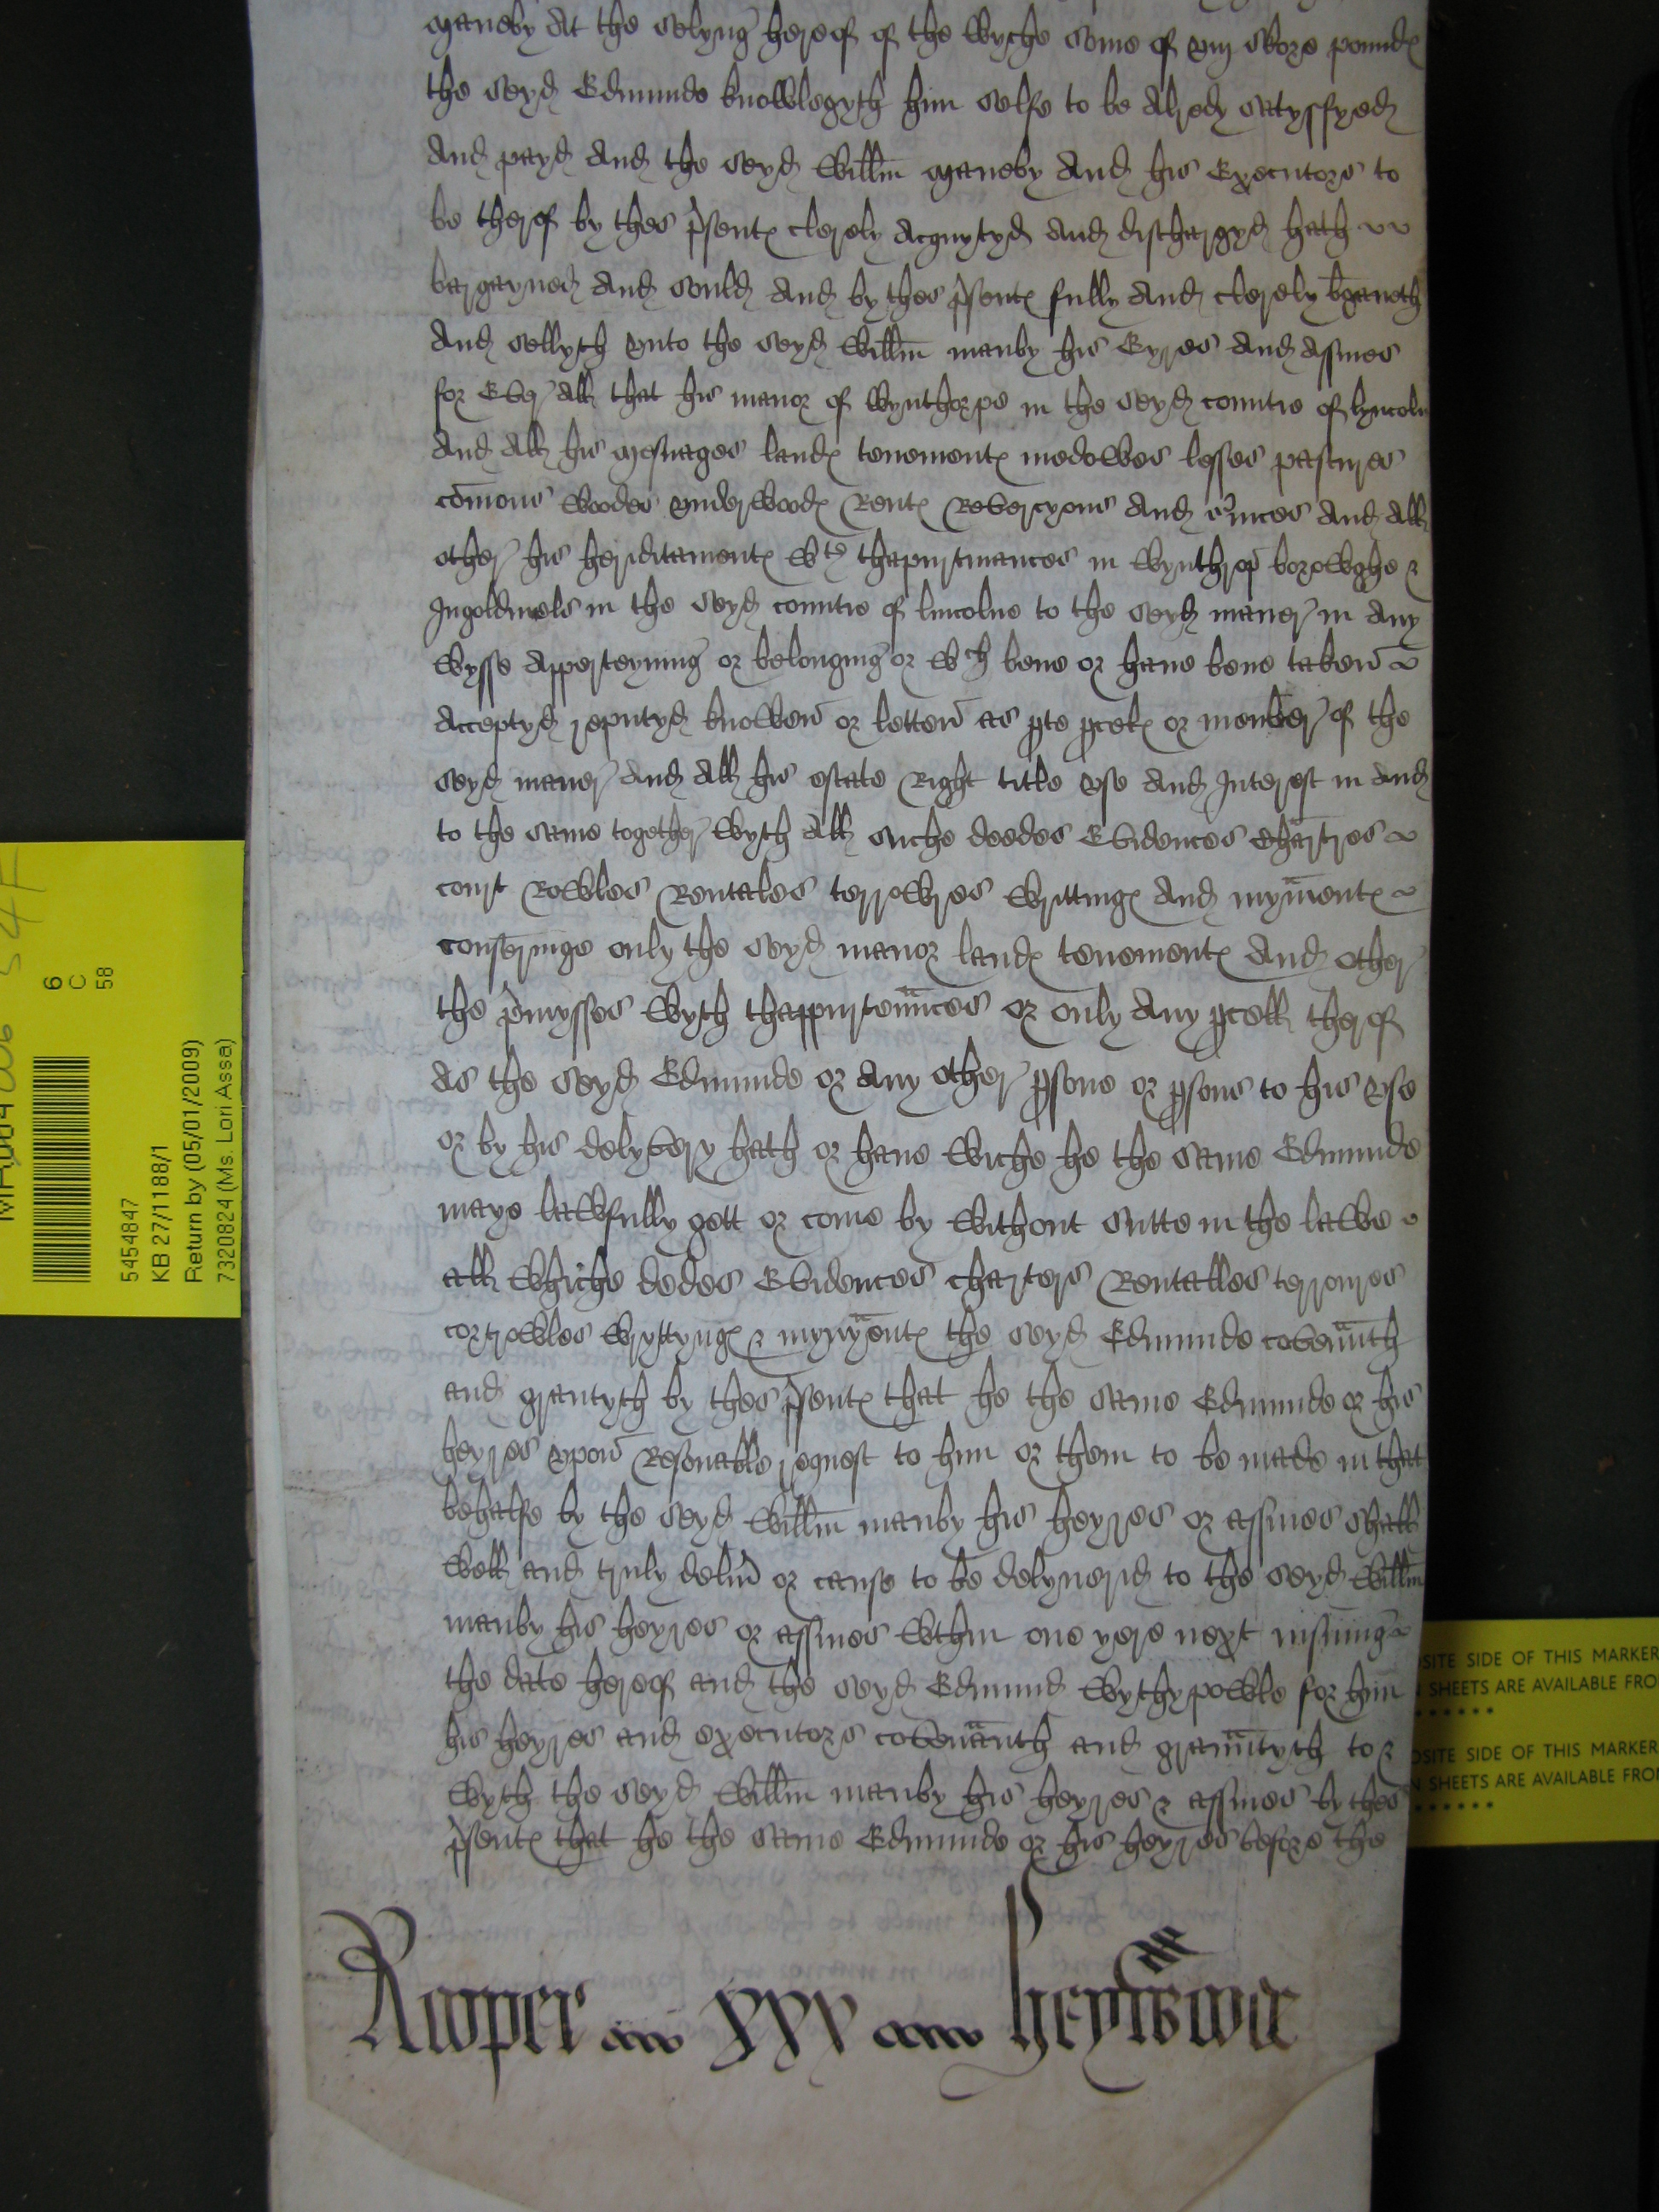 maneby At the selyng hereof of the Wyche some of viij skore poundꝭ
the seyd Edmunde knowlegyth him selfe to be Alredy satyssfyed
And payd And the seyd Willm̄ maneby And his Executors to
be therof by thes p̄sentꝭ clerely Acquytyd And dischargyd hath
bargayned And sould And by thes p̄sentꝭ fully And clerely b̄ganeth
And sellyth vnto the seyd Willm̄ manby his Eyres And Assines
for Ever All that his manor of Wynthorpe in the seyd countie of lyncoln
And All his mesuages landꝭ tenementꝭ medowes lesses pastures
com̄ons Woodes vnderwoodꝭ Rentꝭ Revercyons And s̄uices And All
other his heriditamentꝭ Wᵗʰ thapurtinances in Wynthrop̄ borowghe &
Ingoldmels in the seyd countie of lincolne to the seyd maner in Any
Wysse Apperteyning or belonging or Wᶜʰ bene or haue bene taken
Acceptyd reputyd knowen or letten as ꝑte ꝑcelꝭ or member of the
seyd maner And All his estate Right title vse And Interest in And
to the same together Wyth All suche deedes Evidences chartres
court Rowles Rentales terrowres Writtingꝭ And mym̄entꝭ
conseringe only the seyd manor landꝭ tenementꝭ And other
the p̄mysses Wyth thappurten̄nces or only Any ꝑcell therof
As the seyd Edmunde or Any other ꝑsone or ꝑsons to his vse
or by his delyvery hath or haue Wiche he the same Edmunde
maye lawfully gett or come by Without sutte in the lawe
all Whiche dedes Evidences charters Rentalles terroures
cortrowles Wryttyngꝭ & mynym̄entꝭ the seyd Edmunde coven̄nth
and grantyth by thes p̄sentꝭ that he the same Edmunde or his
heyres vpon Resonable request to him or them to be made in that
behalfe by the seyd Willm̄ manby his heyres or assines shall
Well and truly delīu or cause to be delyuerid to the seyd Willm̄
manby his heyres or assines Wthin one yere next insuing
the date hereof and the seyd Edmund Wythypowle for him
his heyres and executors coven̄anth and gran̄ntyth to &
Wyth the seyd Willm̄ manby his heyres & assines by thes
p̄sentꝭ that he the same Edmunde or his heyres before the
Rooper
xxx
6
C
58
5454847
KB 27/1188/1
Return by (05/01/2009)
7320824 (Ms. Lori Assa)
SITE SIDE OF THIS MARKER
SHEETS ARE AVAILABLE FRO
OSITE SIDE OF THIS MARKER
N SHEETS ARE AVAILABLE FRO